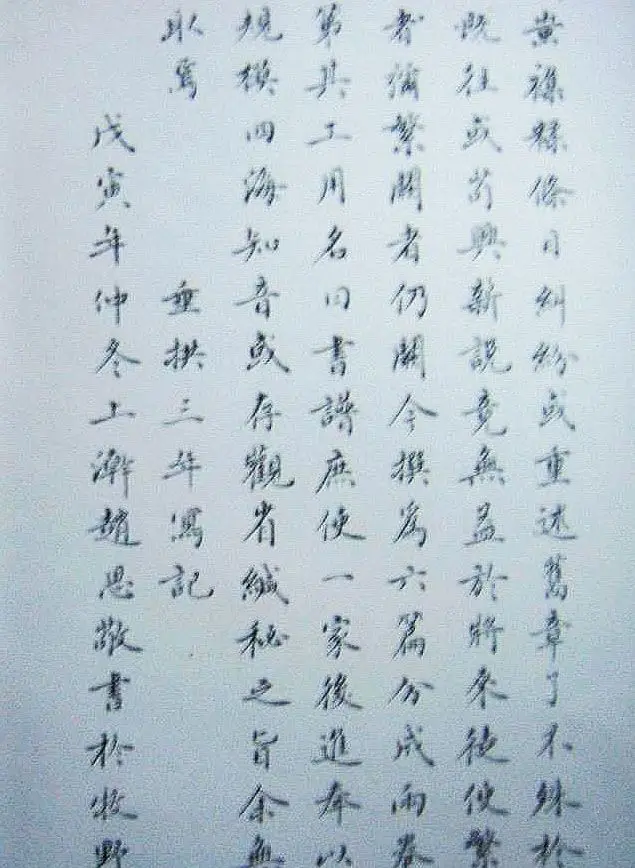 蚩襍糅條目糾紛或重述舊章了不殊於
既往或苟興新説竟無益於將來徒使繁
者彌繁闕者仍闕今撰爲六篇分成兩卷
第其工用名曰書譜庶使一家後進奉以
規模四海知音或存觀省緘秘之旨余無
取焉
垂拱三年寫記
戊寅年仲冬上澣趙思敬書於牧野